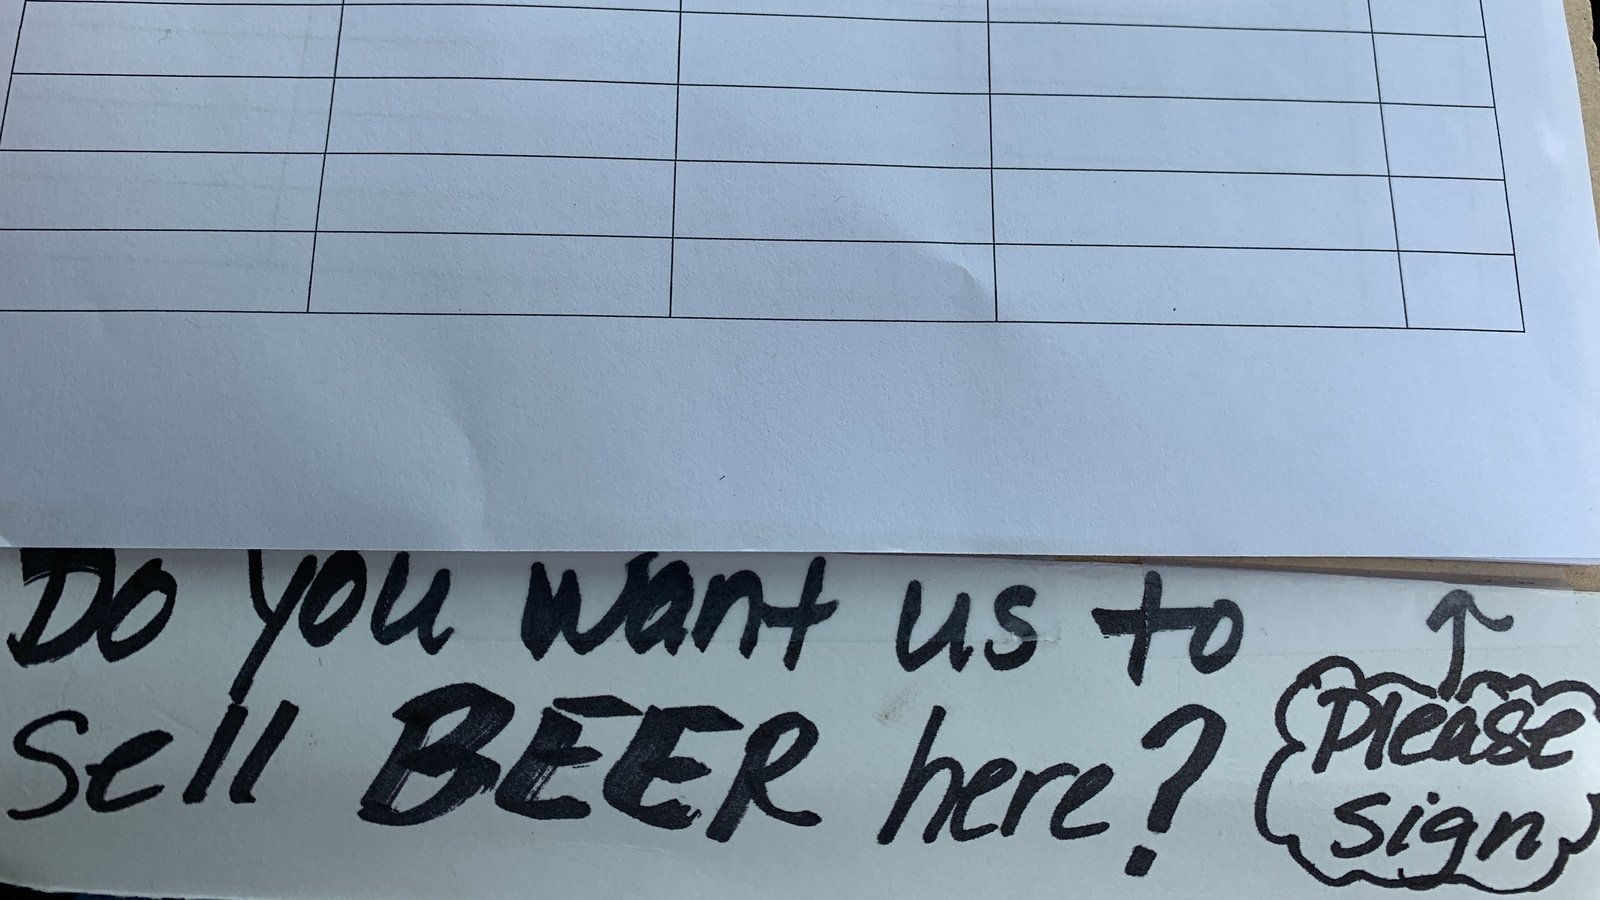 Do you want us to
sell BEER here?
Please
sign